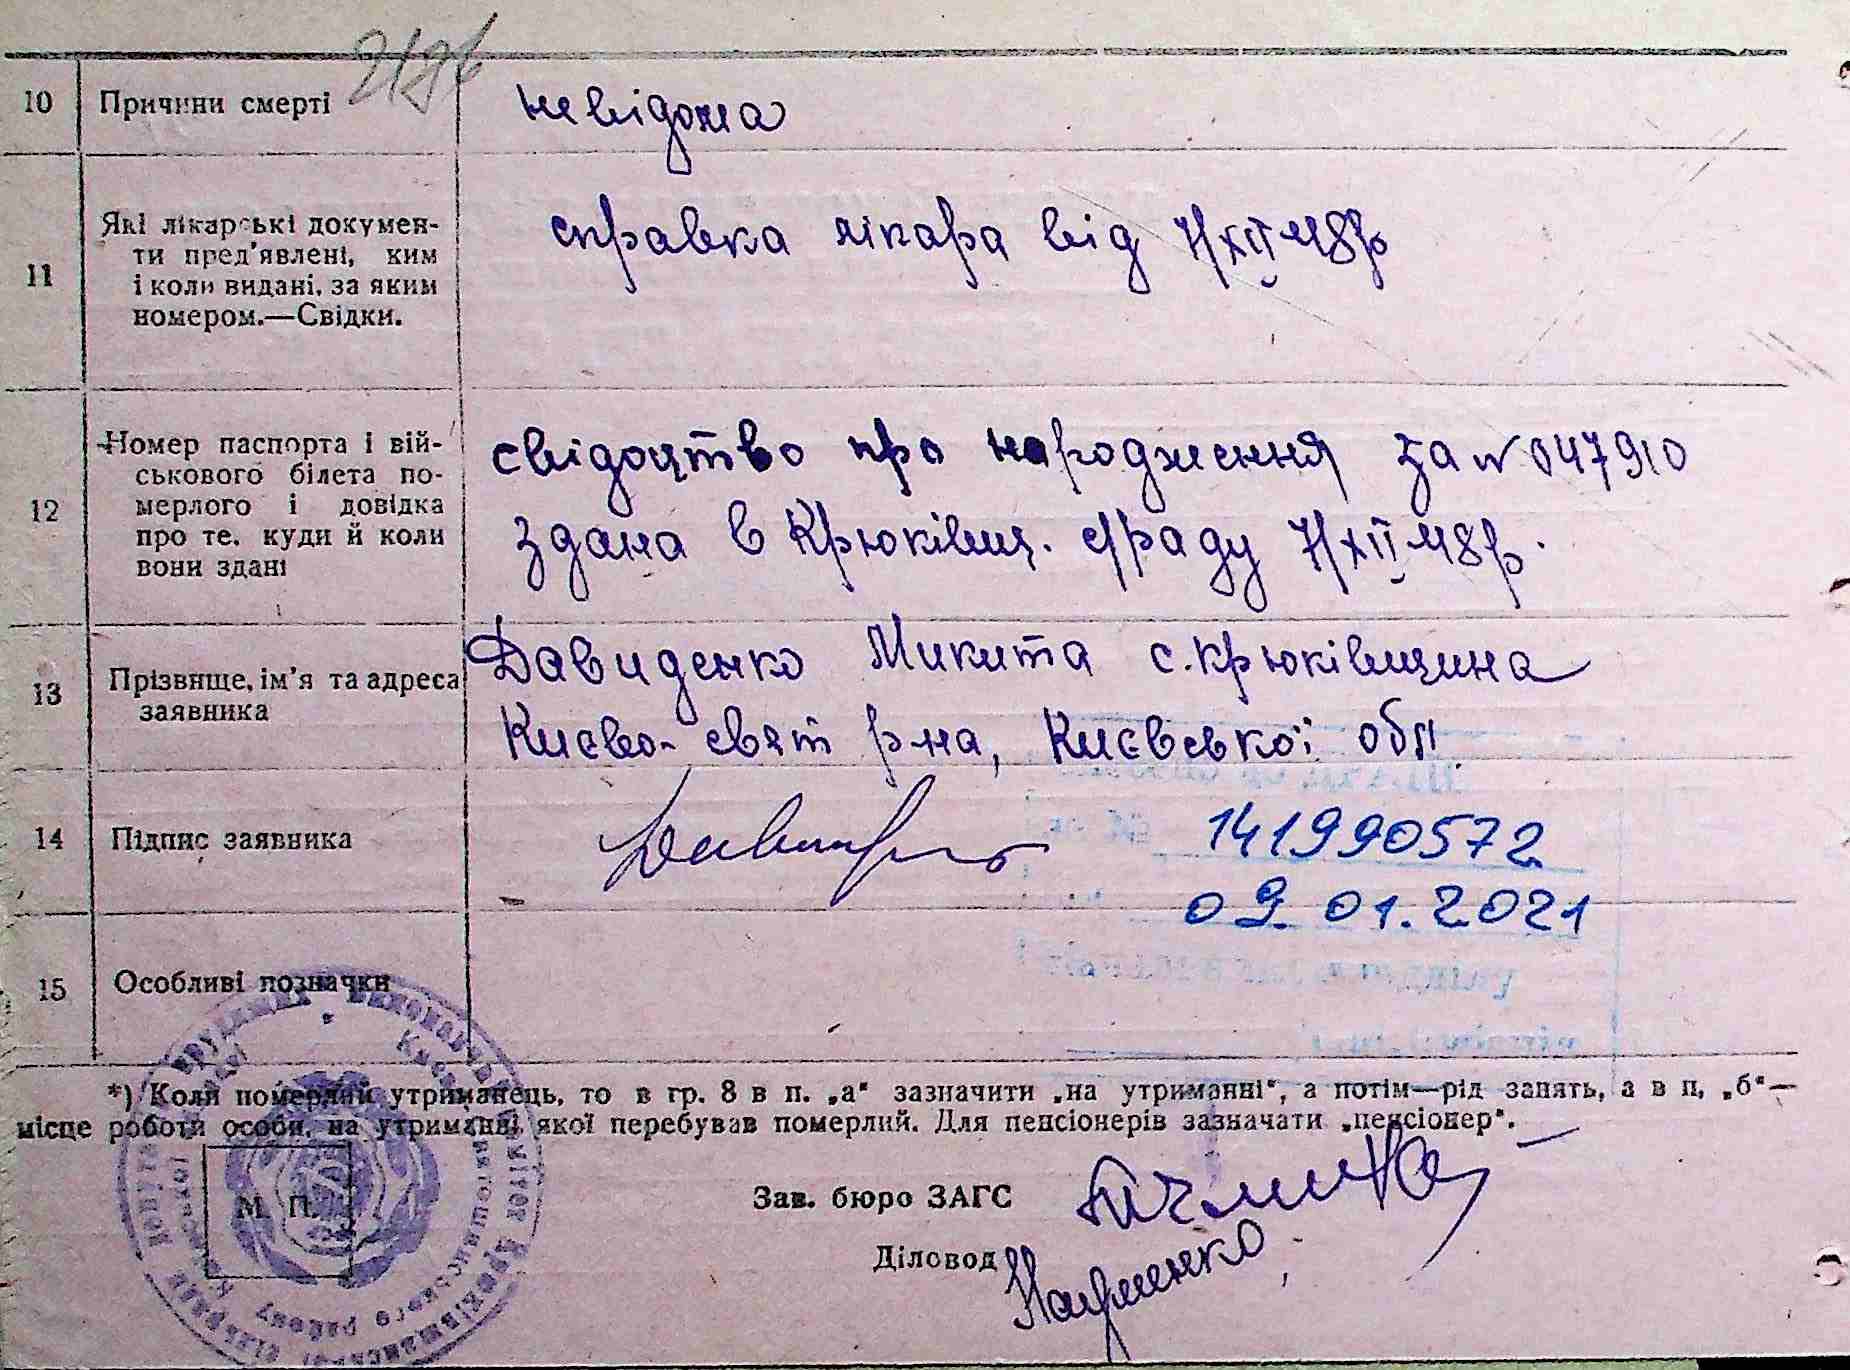 2196
10 Причини смерті невідома
11 Які лікарські докумен-
ти пред'явлені, ким
і коли видані, за яким
номером.—Свідки.
справка лікара від 7/XII-48р
12 Номер паспорта і вій-
ськового білета по-
мерлого і довідка
про те, куди й коли
вони здані
свідоцтво про народження за N 047910
здана в Крюківщ. с/раду 7/XII-48р.
13 Прізвище, ім'я та адреса
заявника
Давиденко Микита с. Крюківщина
Києво-свят р-на, Київської обл.
14 Підпис заявника
141990572
09.01.2021
15 Особливі позначки
*) Коли померлий утриманець, то в гр. 8 в п. „а" зазначити „на утриманні", а потім—рід занять, а в п, „б"—
місце роботи особи, на утриманні якої перебував померлий. Для пенсіонерів зазначати „пенсіонер".
М. П.
Зав. бюро ЗАГС
Діловод Науменко